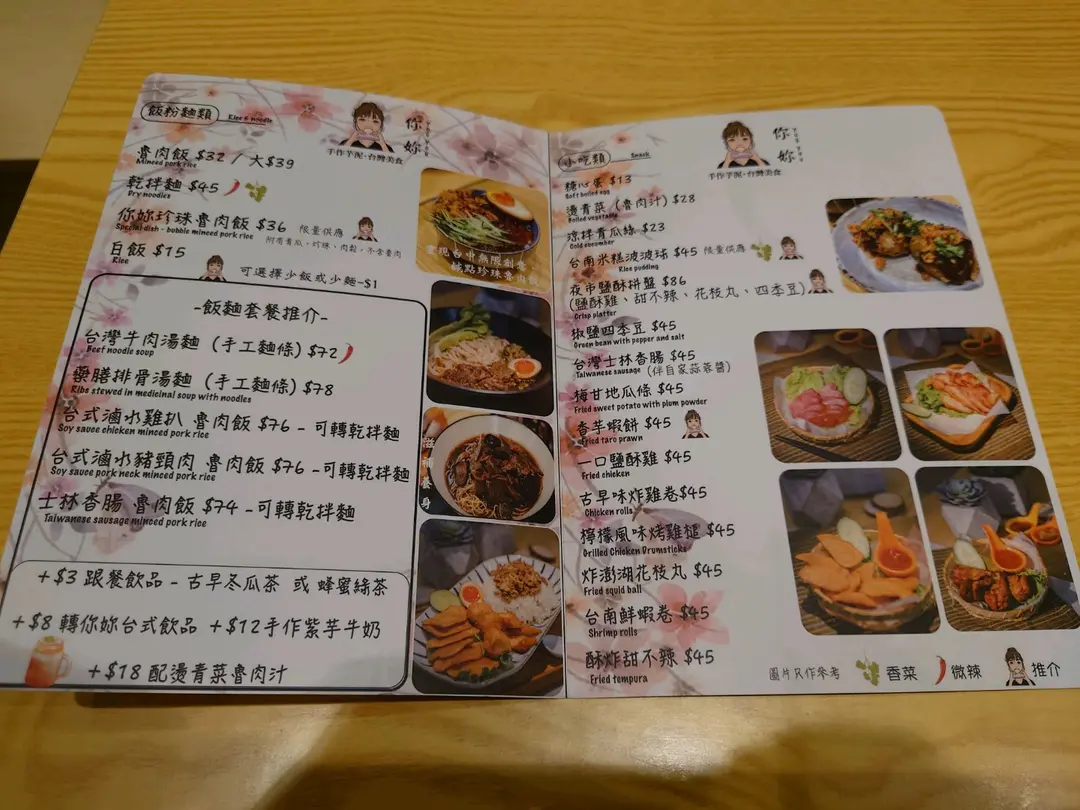 飯粉麵類
Rice & noodle
你妳
YOU YOU
手作芋泥·台灣美食
魯肉飯 $32 / 大$39
Minced pork rice
乾拌麵 $45
Dry noodles
你妳珍珠魯肉飯 $36 限量供應
Special dish - bubble minced pork rice
附有青瓜、珍珠、肉鬆，不含魯肉
白飯 $15
Rice
可選擇少飯或少麵-$1
-飯麵套餐推介-
台灣牛肉湯麵（手工麵條）$72
Beef noodle soup
藥膳排骨湯麵（手工麵條）$78
Ribs stewed in medicinal soup with noodles
台式滷水雞扒 魯肉飯 $76 - 可轉乾拌麵
Soy sauce chicken minced pork rice
台式滷水豬頸肉 魯肉飯 $76 - 可轉乾拌麵
Soy sauce pork neck minced pork rice
士林香腸 魯肉飯 $74 - 可轉乾拌麵
Taiwanese sausage minced pork rice
+$3 跟餐飲品 - 古早冬瓜茶 或 蜂蜜綠茶
+$8 轉你妳台式飲品 +$12手作紫芋牛奶
+$18 配燙青菜魯肉汁
滋補養身
小吃類
Snack
你妳
YOU YOU
手作芋泥·台灣美食
糖心蛋 $13
Soft boiled egg
燙青菜（魯肉汁）$28
Boiled vegetable
涼拌青瓜絲 $23
Cold cucumber
台南米糕波波球 $45 限量供應
Rice pudding
夜市鹽酥拼盤 $86
(鹽酥雞、甜不辣、花枝丸、四季豆)
Crisp platter
椒鹽四季豆 $45
Green bean with pepper and salt
台灣士林香腸 $45
Taiwanese sausage (伴自家蒜蓉醬)
梅甘地瓜條 $45
Fried sweet potato with plum powder
香芋蝦餅 $45
Fried taro prawn
一口鹽酥雞 $45
Fried chicken
古早味炸雞卷$45
Chicken rolls
檸檬風味烤雞槌 $45
Grilled Chicken Drumsticks
炸澎湖花枝丸 $45
Fried squid ball
台南鮮蝦卷 $45
Shrimp rolls
酥炸甜不辣 $45
Fried tempura
圖片只作參考 香菜 微辣 推介